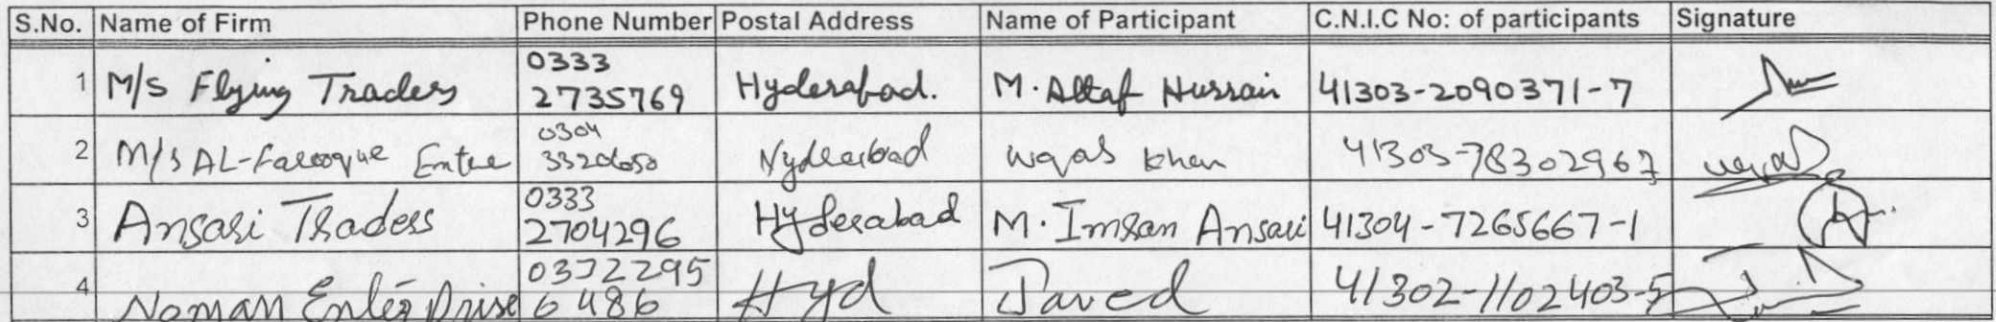 S.No. Name of Firm Phone Number Postal Address Name of Participant C.N.I.C No: of participants Signature
1 M/S Flying Traders 0333 2735769 Hyderabad. M. Altaf Hussain 41303-2090371-7
2 M/S AL-Farooque Enter 0304 Hyderabad Waqas Khan 41303-78302967 waqas
3 Ansari Traders 0333 2704296 Hyderabad M. Imran Ansari 41304-7265667-1
4 Noman Enterprise 6486 Hyd Javed 41302-1102403-5